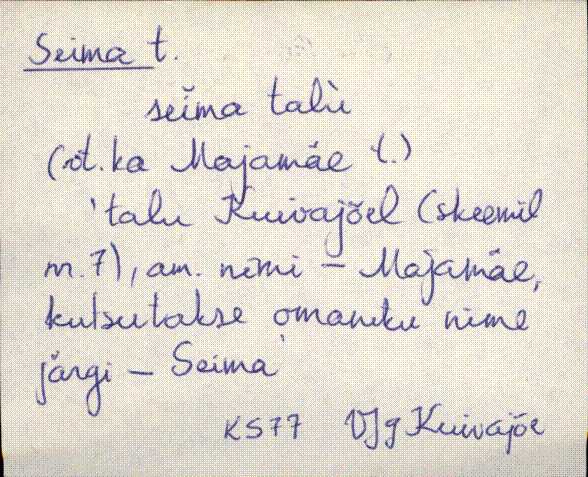 Seima t.
seĭma talù
(vt. ka Majamäe t.)
'talu Kuivajõel (skeemil
nr. 7), am. nimi – Majamäe,
kutsutakse omaniku nime
järgi – Seima'
KS77 VJg Kuivajõe